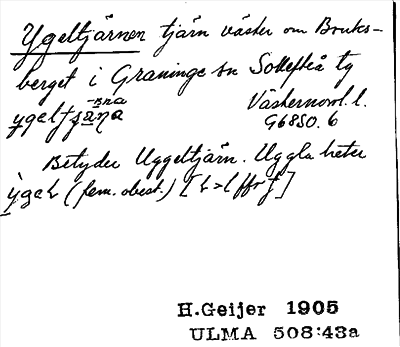 Ygeltjärnen tjärn väster om Bruks-
berget i Graninge sn Sollefteå tg
-ɜna
ygeltjäṇa Västernorrl. l.
G6850. 6
Betyder Uggeltjärn. Uggla heter
ygeL (fem. obest.) [L>l för t]
H.Geijer 1905
ULMA 508:43a